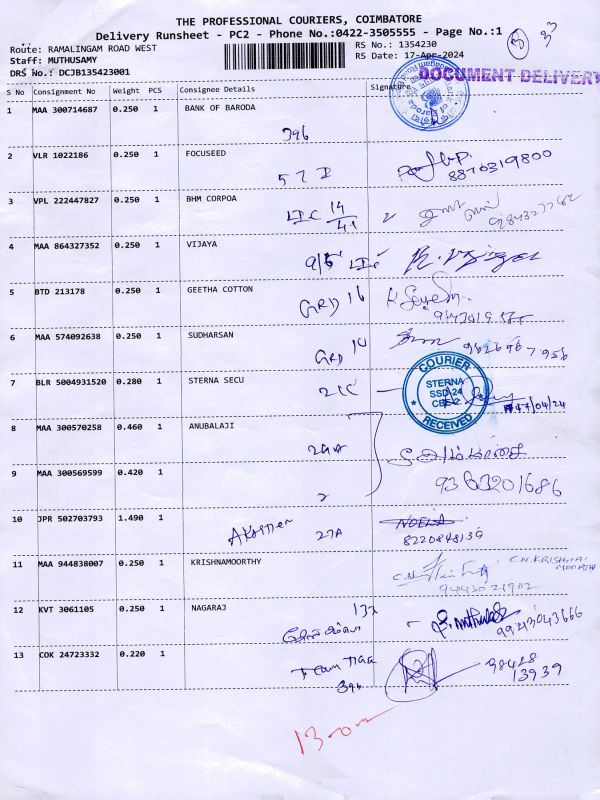 THE PROFESSIONAL COURIERS, COIMBATORE
Delivery Runsheet - PC2 - Phone No.:0422-3505555 - Page No.:1
Route: RAMALINGAM ROAD WEST
Staff: MUTHUSAMY
DRS No.: DCJB135423001
RS No.: 1354230
RS Date: 17-Apr-2024
DOCUMENT DELIVERY
S No Consignment No Weight PCS Consignee Details Signature
1 MAA 300714687 0.250 1 BANK OF BARODA
396
2 VLR 1022186 0.250 1 FOCUSEED
8870319800
3 VPL 222447827 0.250 1 BHM CORPOA
LIC 14/41
4 MAA 864327352 0.250 1 VIJAYA
5 BTD 213178 0.250 1 GEETHA COTTON
GRD 16
6 MAA 574092638 0.250 1 SUDHARSAN
GRD 14
7 BLR 5004931520 0.280 1 STERNA SECU
COURIER
STERNA
SSD-24
CBE-2
RECEIVED
17/04/24
8 MAA 300570258 0.460 1 ANUBALAJI
9 MAA 300569599 0.420 1
9363201686
10 JPR 502703793 1.490 1
27A
8220848139
11 MAA 944838007 0.250 1 KRISHNAMOORTHY
C.N. KRISHNA
MOORTHI
9443021902
12 KVT 3061105 0.250 1 NAGARAJ
9943043666
13 COK 24723332 0.220 1
396
98428
13939